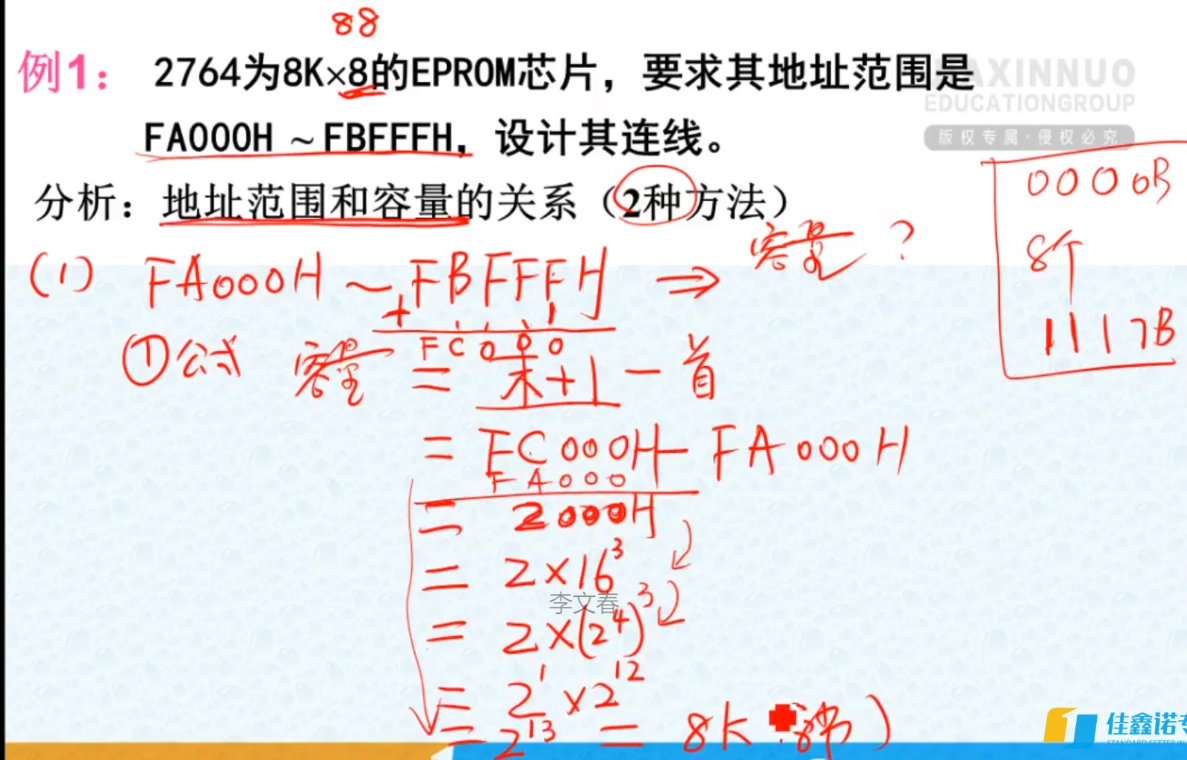 88
例1： 2764为8K×8的EPROM芯片，要求其地址范围是
FA000H ～FBFFFH，设计其连线。
AXINNUO
EDUCATIONGROUP
版权专属·侵权必究
分析：地址范围和容量的关系（2种方法）
0000B
8个
111B
(1) FA000H ~ FBFFFH ⇒ 容量？
+ 1
FC000
①公式 容量 = 末+1 - 首
= FC000H - FA000H
FA000
= 2000H
= 2×16³
李文春
= 2×(2⁴)³
= 2¹×2¹²
= 2¹³ = 8K
佳鑫诺专